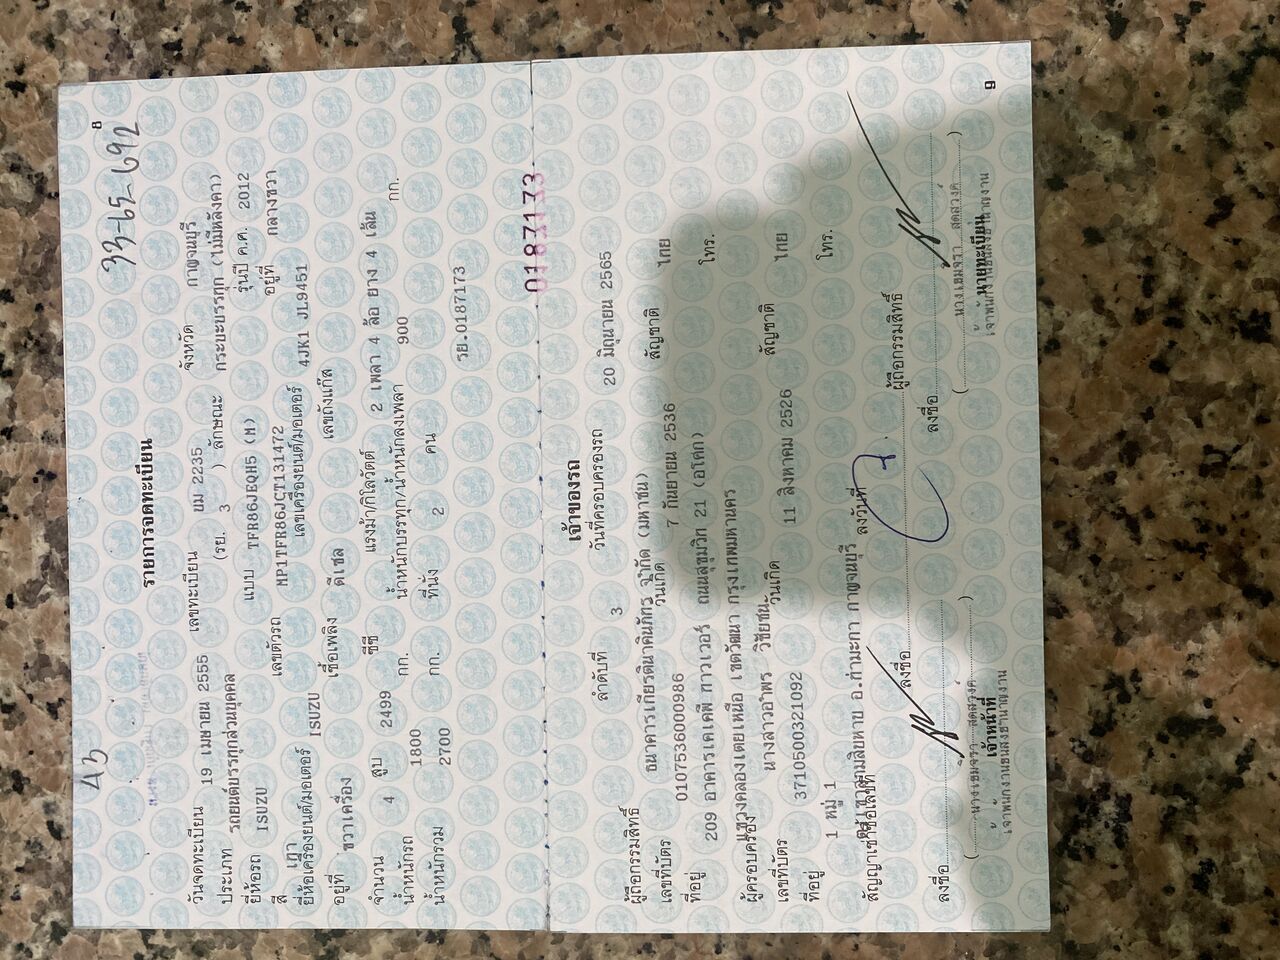 43
33-65-692
8
รายการจดทะเบียน
วันจดทะเบียน 19 เมษายน 2555 เลขทะเบียน ยม 2235 จังหวัด กาญจนบุรี
ประเภท รถยนต์บรรทุกส่วนบุคคล (รย. 3 ) ลักษณะ กระบะบรรทุก (ไม่มีหลังคา)
ยี่ห้อรถ ISUZU แบบ TFR86JEQH5 (M) รุ่นปี ค.ศ. 2012
สี เทา เลขตัวรถ MP1TFR86JCT131472 อยู่ที่ กลางขวา
ยี่ห้อเครื่องยนต์/มอเตอร์ ISUZU เลขเครื่องยนต์/มอเตอร์ 4JK1 JL9451
อยู่ที่ ขวาเครื่อง เชื้อเพลิง ดีเซล เลขถังแก๊ส
จำนวน 4 สูบ 2499 ซีซี แรงม้า/กิโลวัตต์ 2 เพลา 4 ล้อ ยาง 4 เส้น
น้ำหนักรถ 1800 กก. น้ำหนักบรรทุก/น้ำหนักลงเพลา 900 กก.
น้ำหนักรวม 2700 กก. ที่นั่ง 2 คน
รย.0187173
0187173
เจ้าของรถ
ลำดับที่ 3 วันที่ครอบครองรถ 20 มิถุนายน 2565
ผู้ถือกรรมสิทธิ์ ธนาคารเกียรตินาคินภัทร จำกัด (มหาชน)
เลขที่บัตร 0107536000986 วันเกิด 7 กันยายน 2536 สัญชาติ ไทย
ที่อยู่ 209 อาคารเคเคพี ทาวเวอร์ ถนนสุขุมวิท 21 (อโศก) โทร.
แขวงคลองเตยเหนือ เขตวัฒนา กรุงเทพมหานคร
ผู้ครอบครอง นางลาวอำพร วิชัยชนะ
เลขที่บัตร 3710500321092 วันเกิด 11 สิงหาคม 2526 สัญชาติ ไทย
ที่อยู่ 1 หมู่ 1 โทร.
อ.ท่ามะกา กาญจนบุรี
สัญญาเช่าซื้อเลขที่ ลงวันที่ ผู้ถือกรรมสิทธิ์
ลงชื่อ ลงชื่อ ลงชื่อ
เจ้าหน้าที่ นายทะเบียน
9